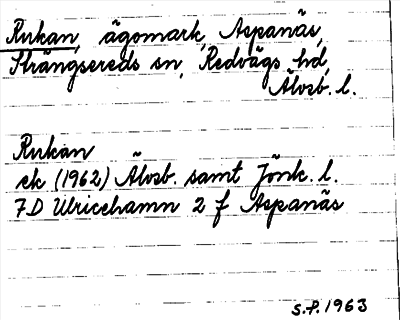 Rukan, ägomark, Aspanäs,
Strängsereds sn, Redvägs hd,
Älvsb. l.
Rukan
ek (1962) Älvsb. samt Jönk. l.
7D Ulricehamn 2 f Aspanäs
S.P. 1963